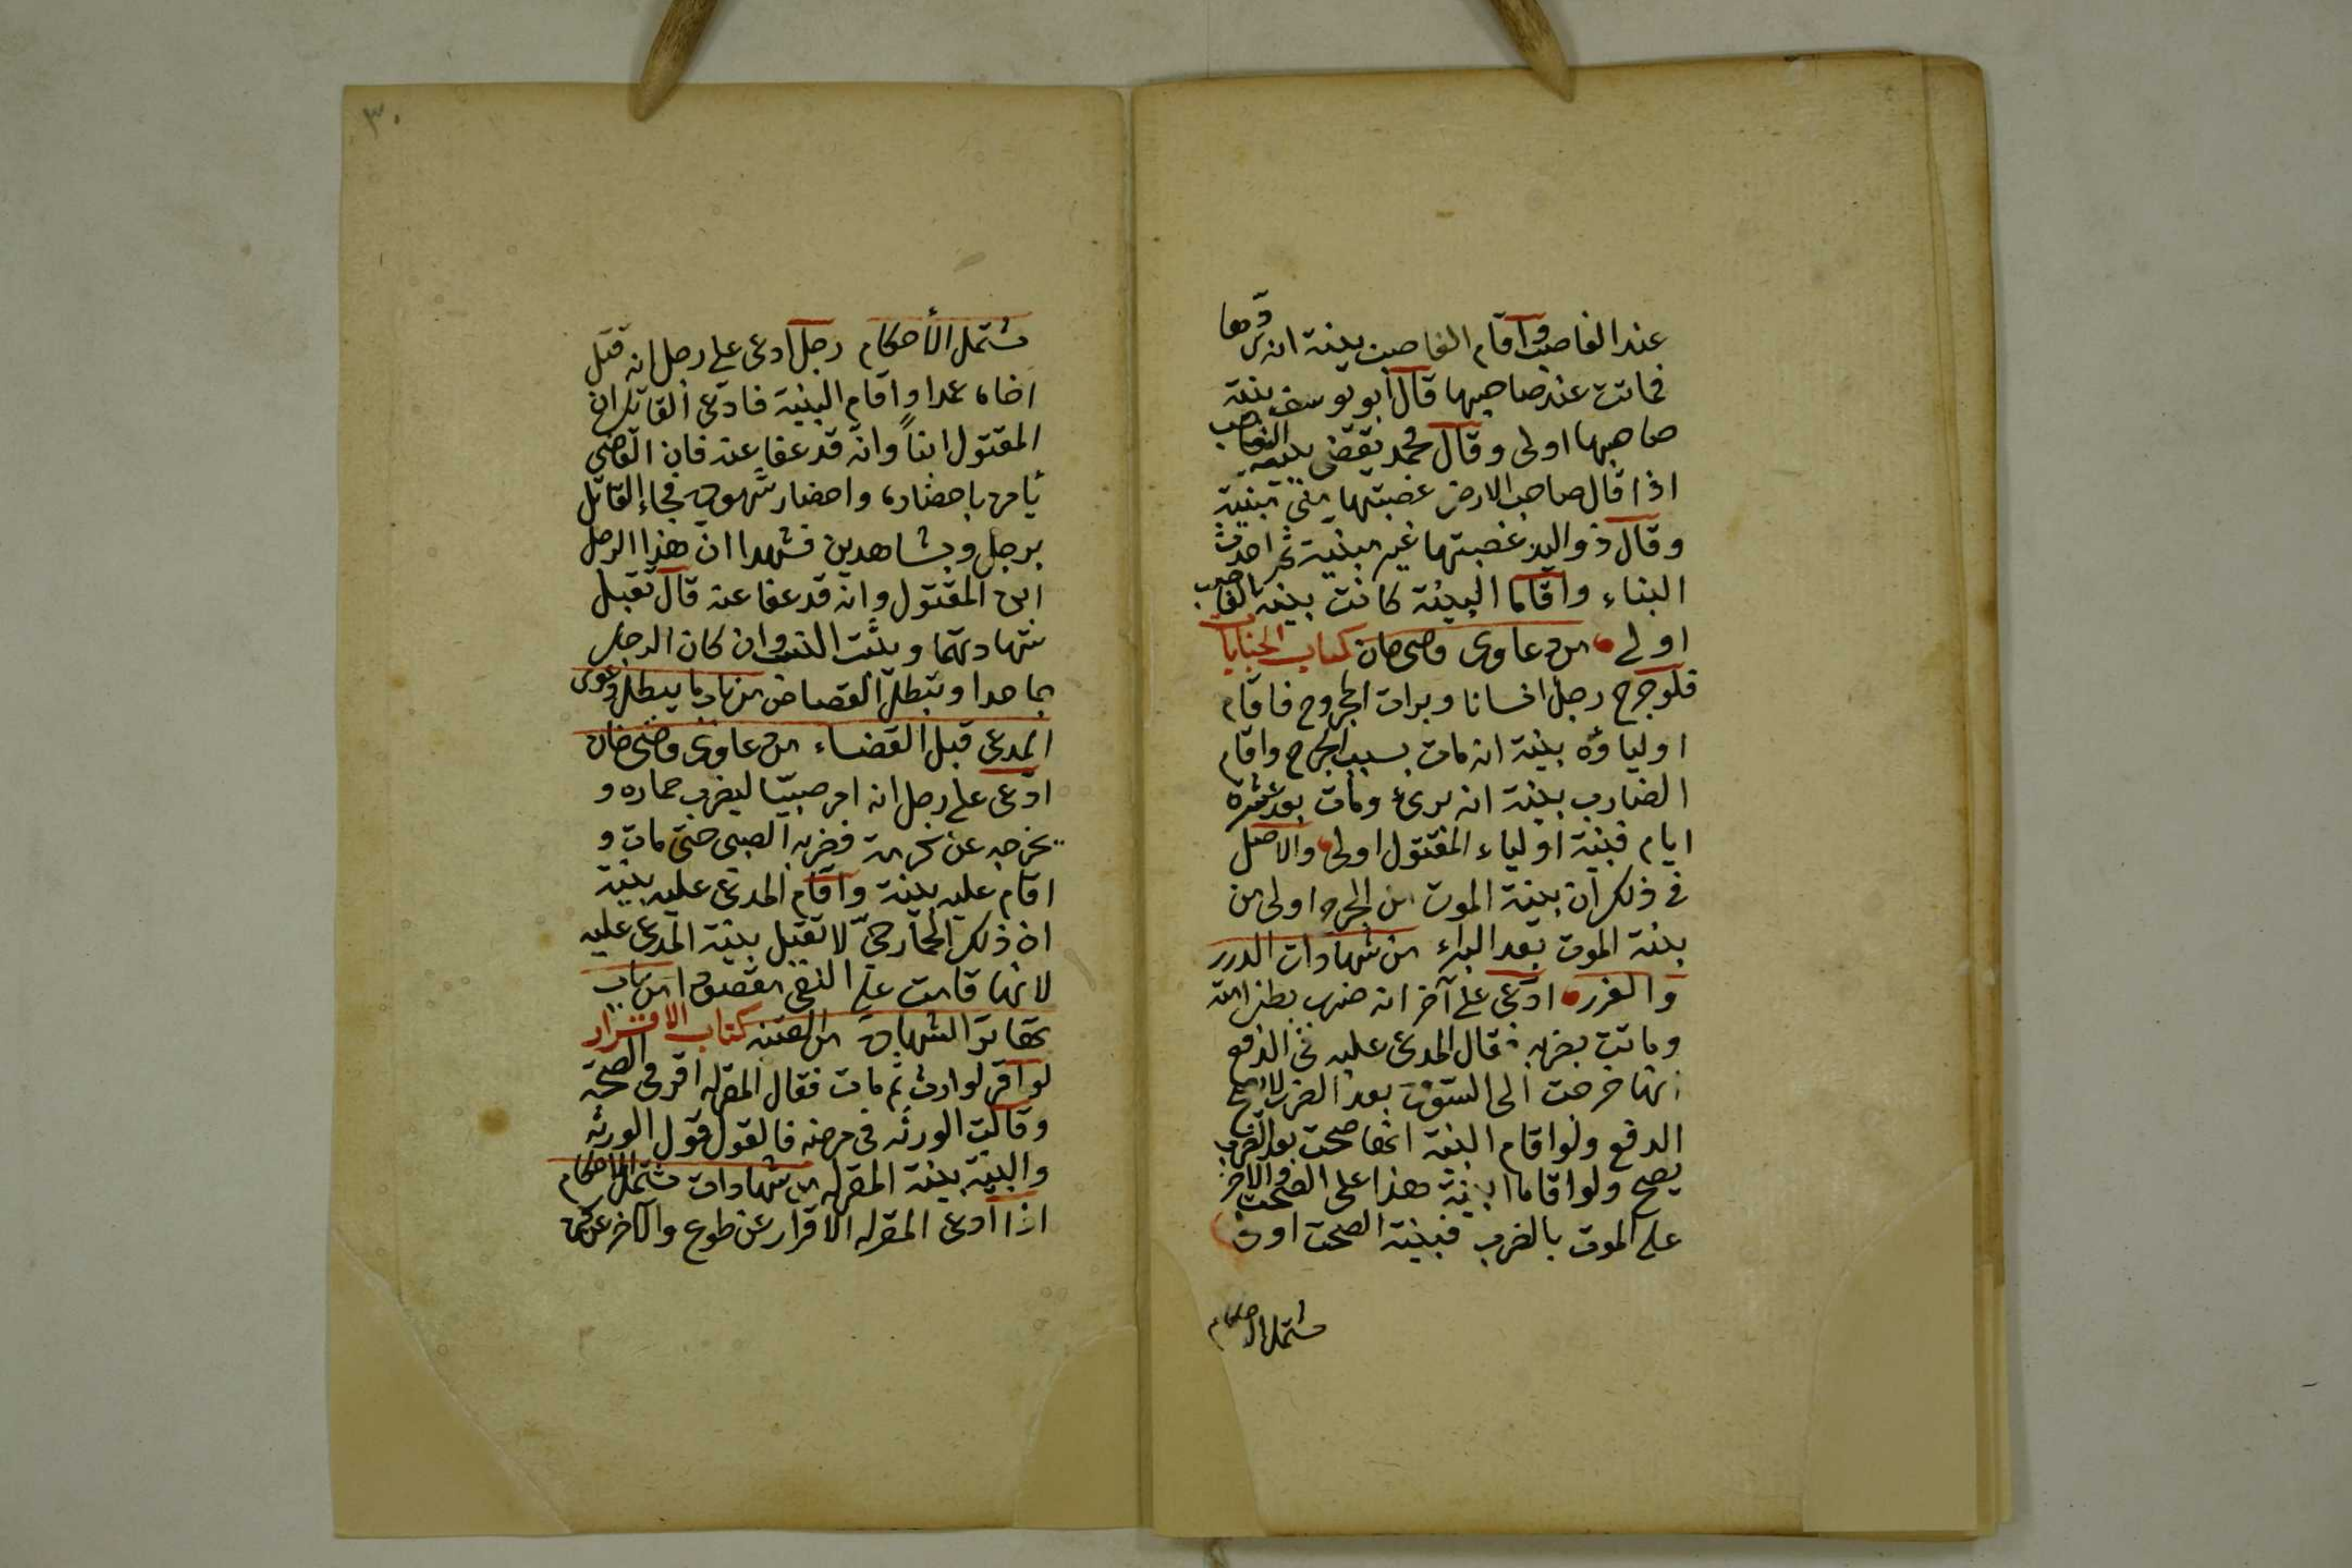 عند الغاصب واقام الغاصب بينة انه ردها
فماتت عند صاحبها قال ابو يوسف بينة
صاحبها اولى وقال محمد يقضى ببينة الغاصب
اذا قال صاحب الارض غصبتها منى مبنية
وقال ذو اليد غصبتها غير مبنية ثم احدثت
البناء واقاما البينة كانت بينة الغاصب
اولى من دعاوى قاضى خان كتاب الجنايات
فلو جرح رجل انسانا وبرات الجروح فاقام
اولياؤه بينة انه مات بسبب الجرح واقام
الضارب بينة انه برئ ومات بعد عشرة
ايام فبينة اولياء المقتول اولى والاصل
فى ذلك ان بينة الموت من الجرح اولى من
بينة الموت بعد البراء من شهادات الدرر
والغرر ادعى على آخر انه ضرب بطن امته
وماتت بضربه فقال المدعى عليه فى الدفع
انها خرجت الى السوق بعد الضرب لا يصح
الدفع ولو اقام البينة انها صحت بعد الضرب
يصح ولو اقاما البينة هذا على الصحت والاخر
على الموت بالضرب فبينة الصحت اولى
مشتمل الاحكام
٣٠
مشتمل الأحكام رجل ادعى على رجل انه قتل
اخاه عمدا واقام البينة فادعى القاتل ان
المقتول ابناً وانه قد عفا عنه فان القاضى
يأمره باحضاره واحضار شهوده فجاء القاتل
برجل وبشاهدين فشهدا ان هذا الرجل
ابن المقتول وانه قد عفا عنه قال تقبل
شهادتهما ويثبت النسب وان كان الرجل
جاحدا ويبطل القصاص من باب ما يبطل دعوى
المدعى قبل القضاء من دعاوى قاضى خان
ادعى على رجل انه امر صبيّا ليضرب حماره و
يخرجه عن كرمه فضربه الصبى حتى مات و
اقام عليه بينة واقام المدعى عليه بينة
ان ذلك الحمار حىّ لا تقبل بينة المدعى عليه
لانها قامت على النفى مقصودا من باب
تهاتر الشهادة من القنيه كتاب الاقرار
لو اقر لوارث ثم مات فقال المقر له اقر فى الصحة
وقالت الورثه فى مرضه فالقول قول الورثه
والبينة بينة المقر له من شهادات مشتمل الاحكام
اذا ادعى المقر له الاقرار عن طوع والآخر عن كره